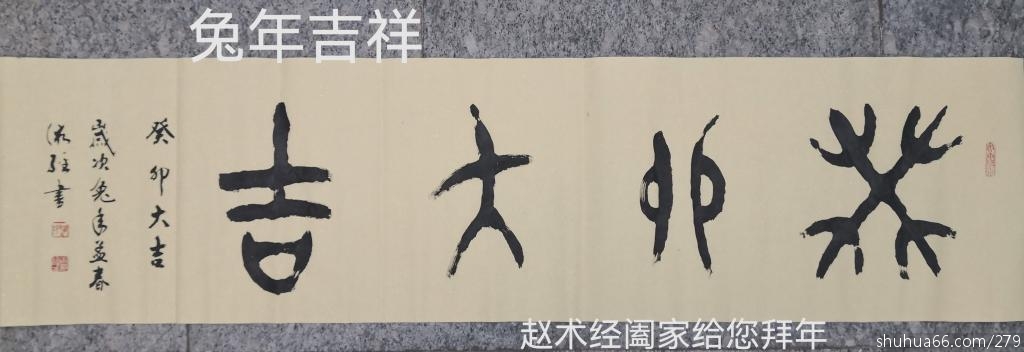 兔年吉祥
癸卯大吉
癸卯大吉
歲次兔年孟春
術經書
赵术经阖家给您拜年
shuhua66.com/279